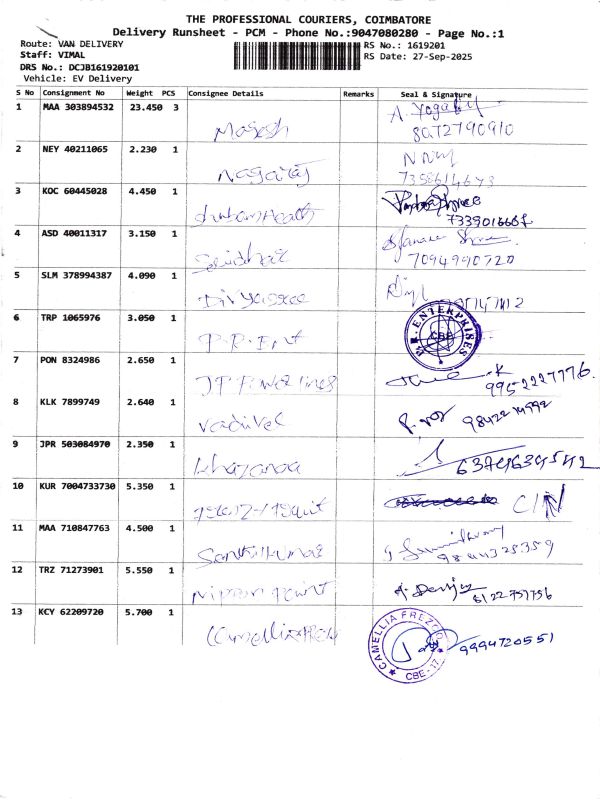 THE PROFESSIONAL COURIERS, COIMBATORE
Delivery Runsheet - PCM - Phone No.:9047080280 - Page No.:1
Route: VAN DELIVERY
RS No.: 1619201
Staff: VIMAL
RS Date: 27-Sep-2025
DRS No.: DCJB161920101
Vehicle: EV Delivery
S No Consignment No Weight PCS Consignee Details Remarks Seal & Signature
1 MAA 303894532 23.450 3
Magesh
8072790910
2 NEY 40211065 2.230 1
Nagaraj
3 KOC 60445028 4.450 1
4 ASD 40011317 3.150 1
7094990720
5 SLM 378994387 4.090 1
Divyasree
6 TRP 1065976 3.050 1
P.R. Ent
P.R. ENTERPRISES
CBE
7 PON 8324986 2.650 1
9952227776
8 KLK 7899749 2.640 1
Vadivel
9 JPR 503084970 2.350 1
Khazana
10 KUR 7004733730 5.350 1
11 MAA 710847763 4.500 1
Senthilkumar
12 TRZ 71273901 5.550 1
Nippon Paint
8122757756
13 KCY 62209720 5.700 1
CAMELLIA FREZCO
CBE-17
9994720551